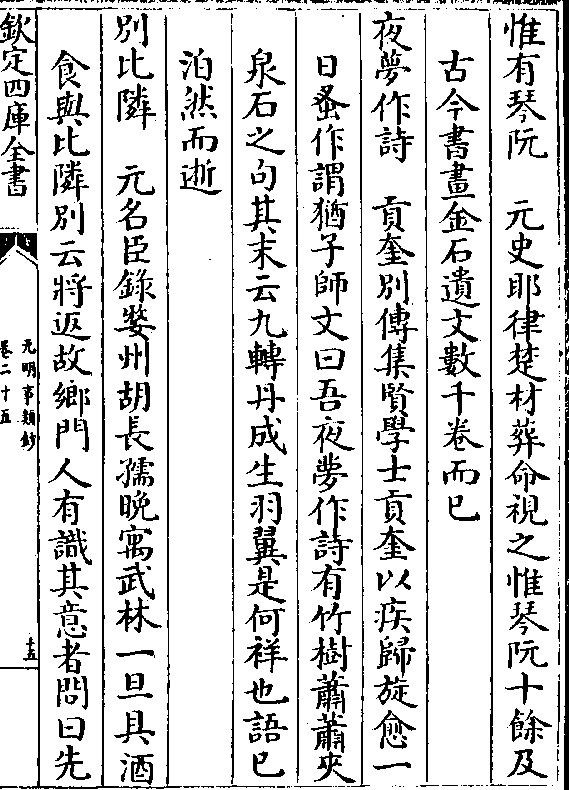 惟有琴阮　元史耶律楚材葬命視之惟琴阮十餘及
古今書畫金石遺文數千卷而已
夜夢作詩　貢奎別傳集賢學士貢奎以疾歸旋愈一
日蚤作謂猶子師文曰吾夜夢作詩有竹樹蕭蕭夾
泉石之句其末云九轉丹成生羽翼是何祥也語已
泊然而逝
別比隣　元名臣錄婺州胡長孺晚寓武林一旦具酒
食與比隣別云將返故鄉門人有識其意者問曰先
欽定四庫全書
元明事類鈔
卷二十五
十五